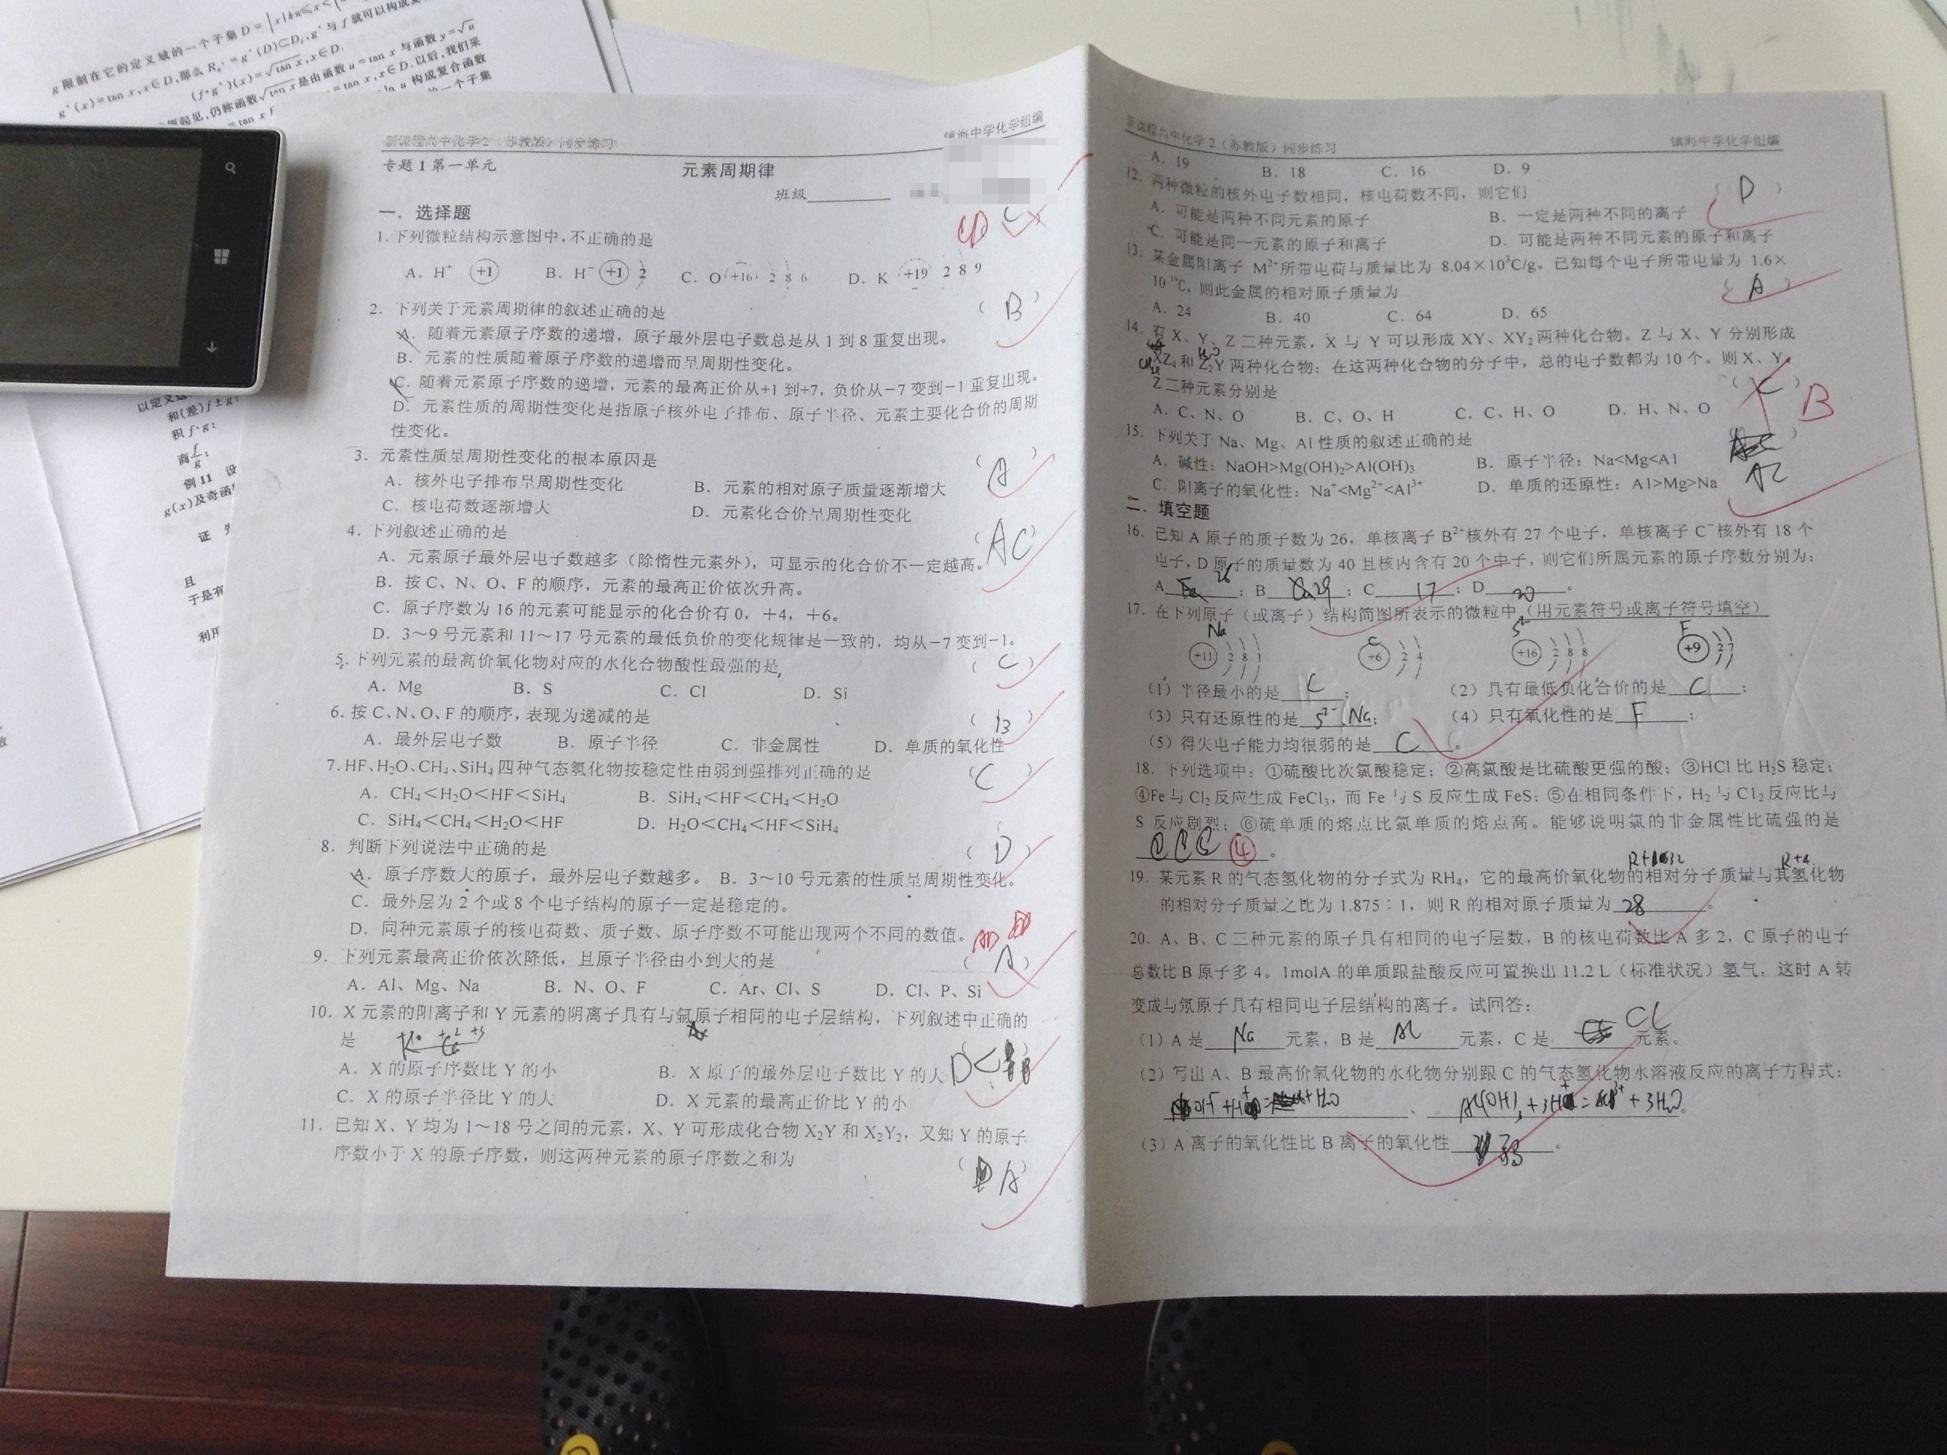 g 限制在它的定义域的一个子集 D =
g*(x)=tan x,x∈D,那么
(f∘g*)(x)=√tan x,x∈D.
仍称函数√tan x是由函数 u=tan x 与函数 y=√u
以后,我们采
构成复合函数
的一个子集
和(差)f±g:
积 f·g:
商 f/g:
例11 设
g(x)及奇函
证
且
于是有
利用
新课程高中化学2（苏教版）同步练习
镇海中学化学组编
专题1 第一单元
元素周期律
班级
一．选择题
CD C
1.下列微粒结构示意图中,不正确的是
A．H⁺ +1 B．H⁻ +1 2 C．O +16 2 8 6 D．K +19 2 8 9
2．下列关于元素周期律的叙述正确的是 （B）
A．随着元素原子序数的递增，原子最外层电子数总是从1到8重复出现。
B．元素的性质随着原子序数的递增而呈周期性变化。
C．随着元素原子序数的递增，元素的最高正价从+1到+7，负价从－7变到－1重复出现。
D．元素性质的周期性变化是指原子核外电子排布、原子半径、元素主要化合价的周期
性变化。
3．元素性质呈周期性变化的根本原因是 （A）
A．核外电子排布呈周期性变化 B．元素的相对原子质量逐渐增大
C．核电荷数逐渐增大 D．元素化合价呈周期性变化
4．下列叙述正确的是 （AC）
A．元素原子最外层电子数越多（除惰性元素外），可显示的化合价不一定越高。
B．按C、N、O、F的顺序，元素的最高正价依次升高。
C．原子序数为16的元素可能显示的化合价有0，+4，+6。
D．3～9号元素和11～17号元素的最低负价的变化规律是一致的，均从－7变到－1。
5．下列元素的最高价氧化物对应的水化合物酸性最强的是 （C）
A．Mg B．S C．Cl D．Si
6．按C、N、O、F的顺序,表现为递减的是 （B）
A．最外层电子数 B．原子半径 C．非金属性 D．单质的氧化性
7．HF、H₂O、CH₄、SiH₄四种气态氢化物按稳定性由弱到强排列正确的是 （C）
A．CH₄<H₂O<HF<SiH₄ B．SiH₄<HF<CH₄<H₂O
C．SiH₄<CH₄<H₂O<HF D．H₂O<CH₄<HF<SiH₄
8．判断下列说法中正确的是 （D）
A．原子序数大的原子，最外层电子数越多。 B．3～10号元素的性质呈周期性变化。
C．最外层为2个或8个电子结构的原子一定是稳定的。
D．同种元素原子的核电荷数、质子数、原子序数不可能出现两个不同的数值。
9．下列元素最高正价依次降低，且原子半径由小到大的是 （A）
A．Al、Mg、Na B．N、O、F C．Ar、Cl、S D．Cl、P、Si
10．X元素的阳离子和Y元素的阴离子具有与氩原子相同的电子层结构，下列叙述中正确的
是 DC
A．X的原子序数比Y的小 B．X原子的最外层电子数比Y的大
C．X的原子半径比Y的大 D．X元素的最高正价比Y的小
11．已知X、Y均为1～18号之间的元素，X、Y可形成化合物X₂Y和X₂Y₂，又知Y的原子
序数小于X的原子序数，则这两种元素的原子序数之和为 A
新课程高中化学2（苏教版）同步练习
镇海中学化学组编
A．19 B．18 C．16 D．9
12．两种微粒的核外电子数相同，核电荷数不同，则它们 （D）
A．可能是两种不同元素的原子 B．一定是两种不同的离子
C．可能是同一元素的原子和离子 D．可能是两种不同元素的原子和离子
13．某金属阳离子 M²⁺所带电荷与质量比为 8.04×10³C/g。已知每个电子所带电量为 1.6×
10⁻¹⁹C，则此金属的相对原子质量为 （A）
A．24 B．40 C．64 D．65
14．有X、Y、Z三种元素，X与Y可以形成XY、XY₂两种化合物。Z与X、Y分别形成
XZ₄和Z₂Y两种化合物；在这两种化合物的分子中，总的电子数都为10个。则X、Y、
Z三种元素分别是 （C） B
A．C、N、O B．C、O、H C．C、H、O D．H、N、O
15．下列关于Na、Mg、Al性质的叙述正确的是
A．碱性：NaOH>Mg(OH)₂>Al(OH)₃ B．原子半径：Na<Mg<Al
AC
C．阳离子的氧化性：Na⁺<Mg²⁺<Al³⁺ D．单质的还原性：Al>Mg>Na
二．填空题
16．已知A原子的质子数为26，单核离子B²⁺核外有27个电子，单核离子C⁻核外有18个
电子，D原子的质量数为40且核内含有20个中子，则它们所属元素的原子序数分别为：
A 26；B 29；C 17；D 20。
17．在下列原子（或离子）结构简图所表示的微粒中（用元素符号或离子符号填空）
Na C S²⁻ F
+11 2 8 1 +6 2 4 +16 2 8 8 +9 2 7
（1）半径最小的是 C ； （2）具有最低负化合价的是 C ；
（3）只有还原性的是 S²⁻、Na； （4）只有氧化性的是 F ；
（5）得失电子能力均很弱的是 C 。
18．下列选项中：①硫酸比次氯酸稳定；②高氯酸是比硫酸更强的酸；③HCl比H₂S稳定；
④Fe与Cl₂反应生成FeCl₃，而Fe与S反应生成FeS；⑤在相同条件下，H₂与Cl₂反应比与
S反应剧烈；⑥硫单质的熔点比氯单质的熔点高。能够说明氯的非金属性比硫强的是
④ 。
R+32 R+4
19．某元素R的气态氢化物的分子式为RH₄，它的最高价氧化物的相对分子质量与其氢化物
的相对分子质量之比为1.875∶1，则R的相对原子质量为 28 。
20．A、B、C三种元素的原子具有相同的电子层数，B的核电荷数比A多2，C原子的电子
总数比B原子多4。1molA的单质跟盐酸反应可置换出11.2 L（标准状况）氢气，这时A转
变成与氖原子具有相同电子层结构的离子。试回答：
（1）A是 Na 元素，B是 Al 元素，C是 Cl 元素。
（2）写出A、B最高价氧化物的水化物分别跟C的气态氢化物水溶液反应的离子方程式：
OH⁻+H⁺=H₂O 、 Al(OH)₃+3H⁺=Al³⁺+3H₂O。
（3）A离子的氧化性比B离子的氧化性 弱 。